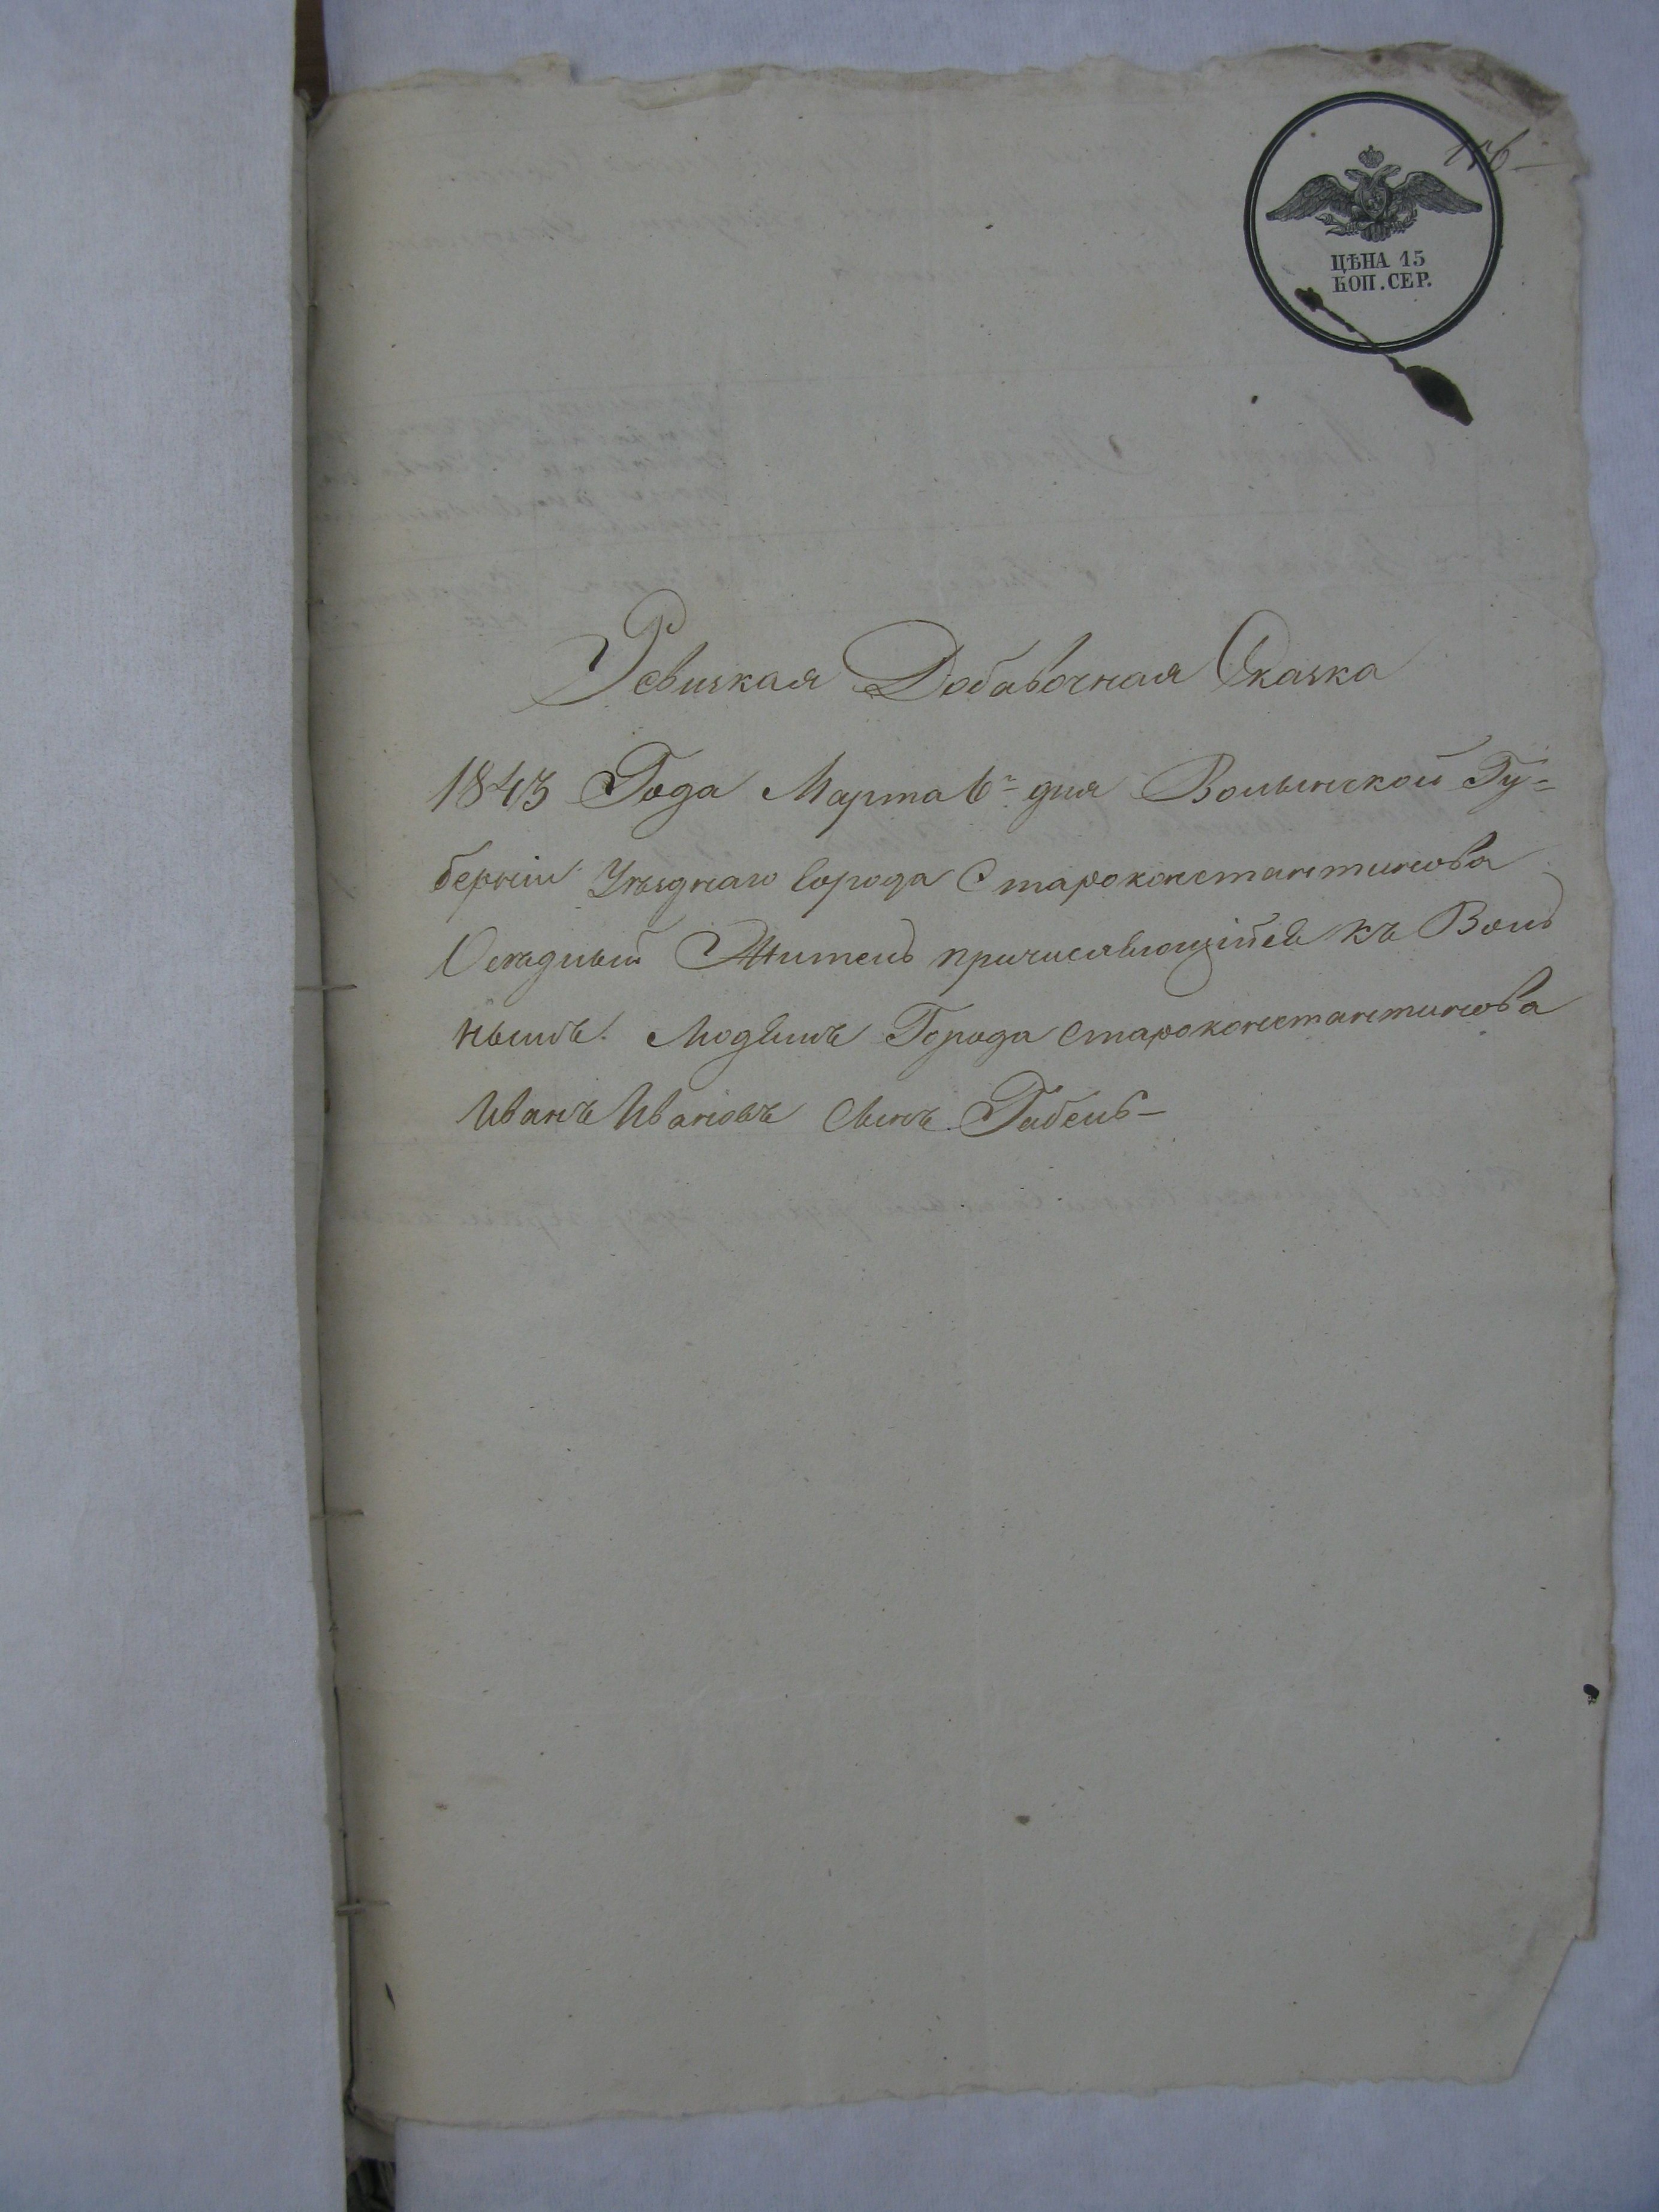 ЦѢНА 15
КОП. СЕР.
Ревизкая Добавочная Сказка
1843 Года Марта 6го дня Волынской Гу=
берніи Уѣзднаго города Староконстантинова
Осѣдлый Житель причисляющійся къ Воль
нымъ Людямъ Города Староконстантинова
Иванъ Ивановъ Сынъ